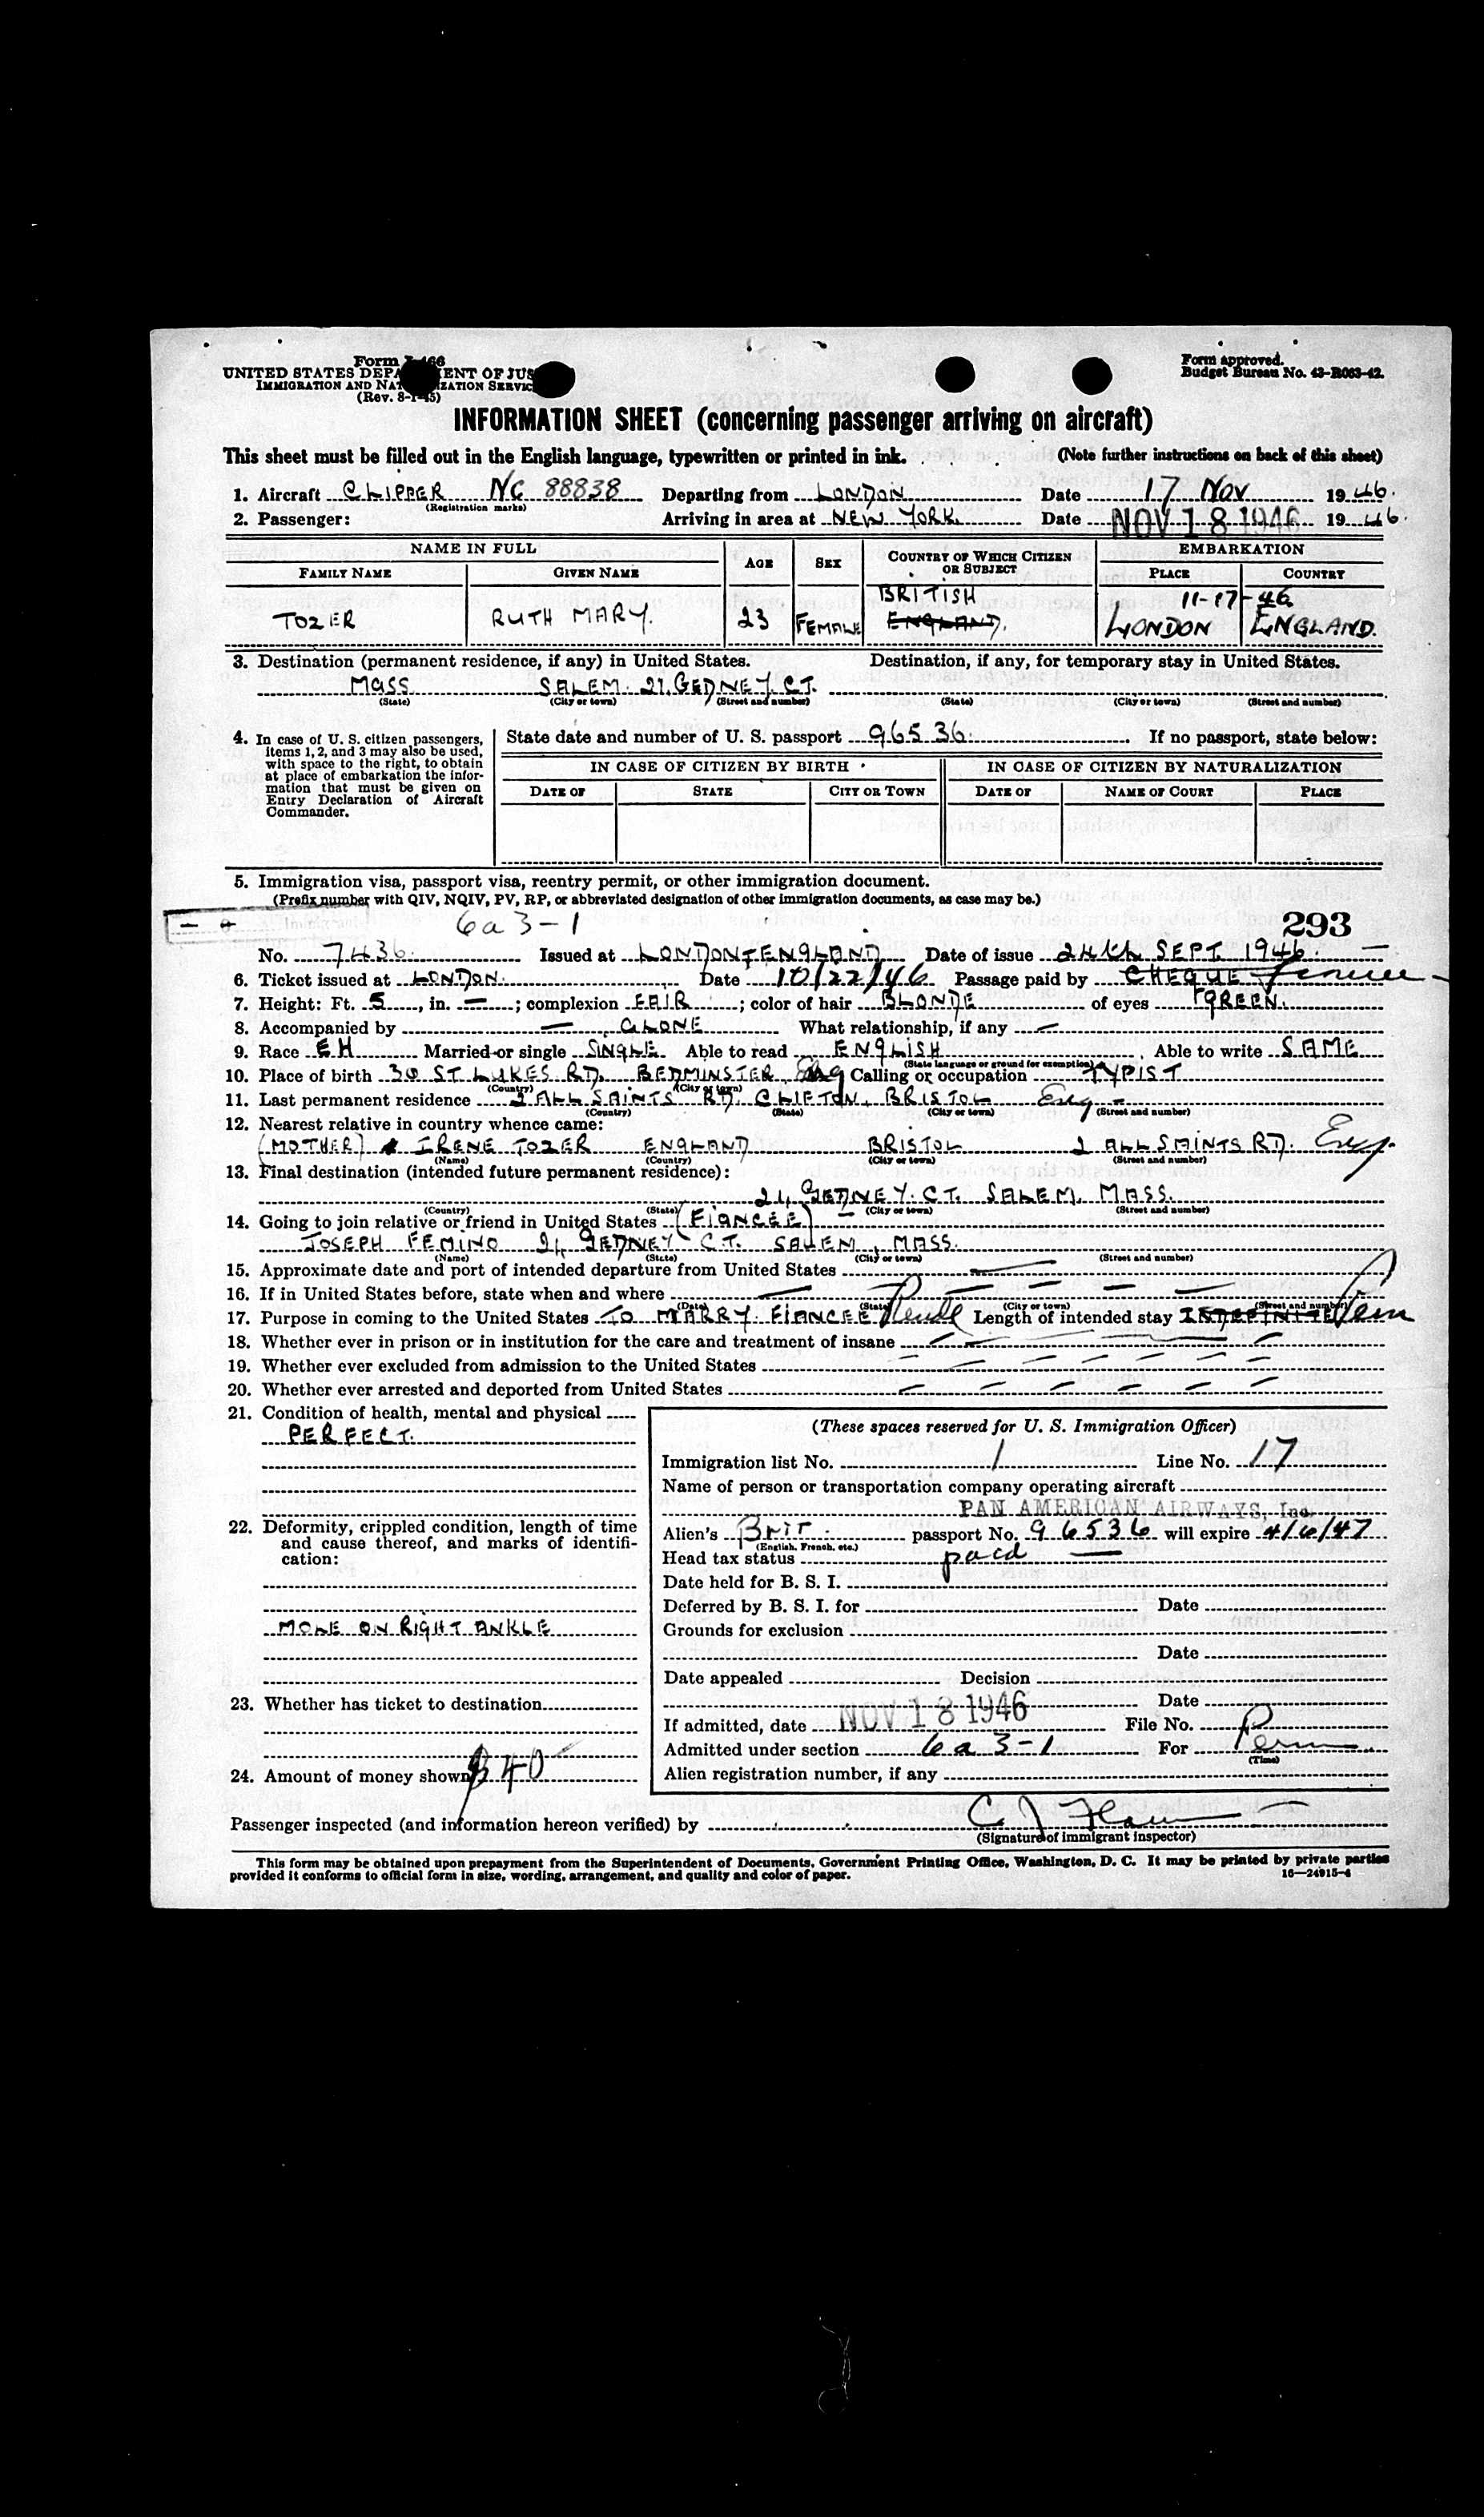 Form I-466
UNITED STATES DEPA ENT OF JUS
IMMIGRATION AND NAT IZATION SERVIC
(Rev. 8-1-45)
Form approved.
Budget Bureau No. 43-R063-42.
INFORMATION SHEET (concerning passenger arriving on aircraft)
This sheet must be filled out in the English language, typewritten or printed in ink. (Note further instructions on back of this sheet)
1. Aircraft CLIPPER NC 88838 Departing from LONDON Date 17 NOV 1946.
(Registration marks)
2. Passenger: Arriving in area at NEW YORK Date NOV 18 1946 1946.
NAME IN FULL AGE SEX COUNTRY OF WHICH CITIZEN OR SUBJECT EMBARKATION
FAMILY NAME GIVEN NAME PLACE COUNTRY
BRITISH 11-17-46
TOZER RUTH MARY. 23 FEMALE ENGLAND. LONDON ENGLAND.
3. Destination (permanent residence, if any) in United States. Destination, if any, for temporary stay in United States.
MASS SALEM. 21. GEDNEY. CT.
(State) (City or town) (Street and number) (State) (City or town) (Street and number)
4. In case of U. S. citizen passengers, items 1, 2, and 3 may also be used, with space to the right, to obtain at place of embarkation the information that must be given on Entry Declaration of Aircraft Commander.
State date and number of U. S. passport 96536. If no passport, state below:
IN CASE OF CITIZEN BY BIRTH IN CASE OF CITIZEN BY NATURALIZATION
DATE OF STATE CITY OR TOWN DATE OF NAME OF COURT PLACE
5. Immigration visa, passport visa, reentry permit, or other immigration document.
(Prefix number with QIV, NQIV, PV, RP, or abbreviated designation of other immigration documents, as case may be.)
6a3-1 293
No. 7436. Issued at LONDON, ENGLAND Date of issue 24th SEPT. 1946.
6. Ticket issued at LONDON. Date 10/22/46 Passage paid by CHEQUE
7. Height: Ft. 5, in. —; complexion FAIR; color of hair BLONDE of eyes GREEN.
8. Accompanied by — ALONE What relationship, if any —
9. Race EH Married or single SINGLE Able to read ENGLISH, Able to write SAME
(State language or ground for exemption)
10. Place of birth 30 ST LUKES RD. BEDMINSTER Eng Calling or occupation TYPIST
(Country) (City or town)
11. Last permanent residence 2 ALL SAINTS RD. CLIFTON. BRISTOL Eng
(Country) (State) (City or town) (Street and number)
12. Nearest relative in country whence came:
(MOTHER) IRENE TOZER ENGLAND BRISTOL 2 ALL SAINTS RD. Eng.
(Name) (Country) (City or town) (Street and number)
13. Final destination (intended future permanent residence):
21, GEDNEY. CT. SALEM. MASS.
(Country) (State) (City or town) (Street and number)
14. Going to join relative or friend in United States (FIANCEE)
JOSEPH FEMINO 21, GEDNEY CT. SALEM, MASS.
(Name) (State) (City or town) (Street and number)
15. Approximate date and port of intended departure from United States —
16. If in United States before, state when and where — — — — — —
(Date) (State) (City or town) (Street and number)
17. Purpose in coming to the United States TO MARRY FIANCEE Length of intended stay INDEFINITE Perm
18. Whether ever in prison or in institution for the care and treatment of insane
19. Whether ever excluded from admission to the United States
20. Whether ever arrested and deported from United States
21. Condition of health, mental and physical
PERFECT.
22. Deformity, crippled condition, length of time and cause thereof, and marks of identification:
MOLE ON RIGHT ANKLE
23. Whether has ticket to destination
24. Amount of money shown $40
(These spaces reserved for U. S. Immigration Officer)
Immigration list No. 1 Line No. 17
Name of person or transportation company operating aircraft
PAN AMERICAN AIRWAYS, Inc.
Alien's Brit. passport No. 96536 will expire 4/6/47
(English, French, etc.)
Head tax status paid —
Date held for B. S. I.
Deferred by B. S. I. for Date
Grounds for exclusion
Date
Date appealed Decision
NOV 18 1946 Date
If admitted, date File No.
Admitted under section 6a3-1 For Perm
(Time)
Alien registration number, if any
Passenger inspected (and information hereon verified) by
(Signature of immigrant inspector)
This form may be obtained upon prepayment from the Superintendent of Documents, Government Printing Office, Washington, D. C. It may be printed by private parties
provided it conforms to official form in size, wording, arrangement, and quality and color of paper. 16—24915-4